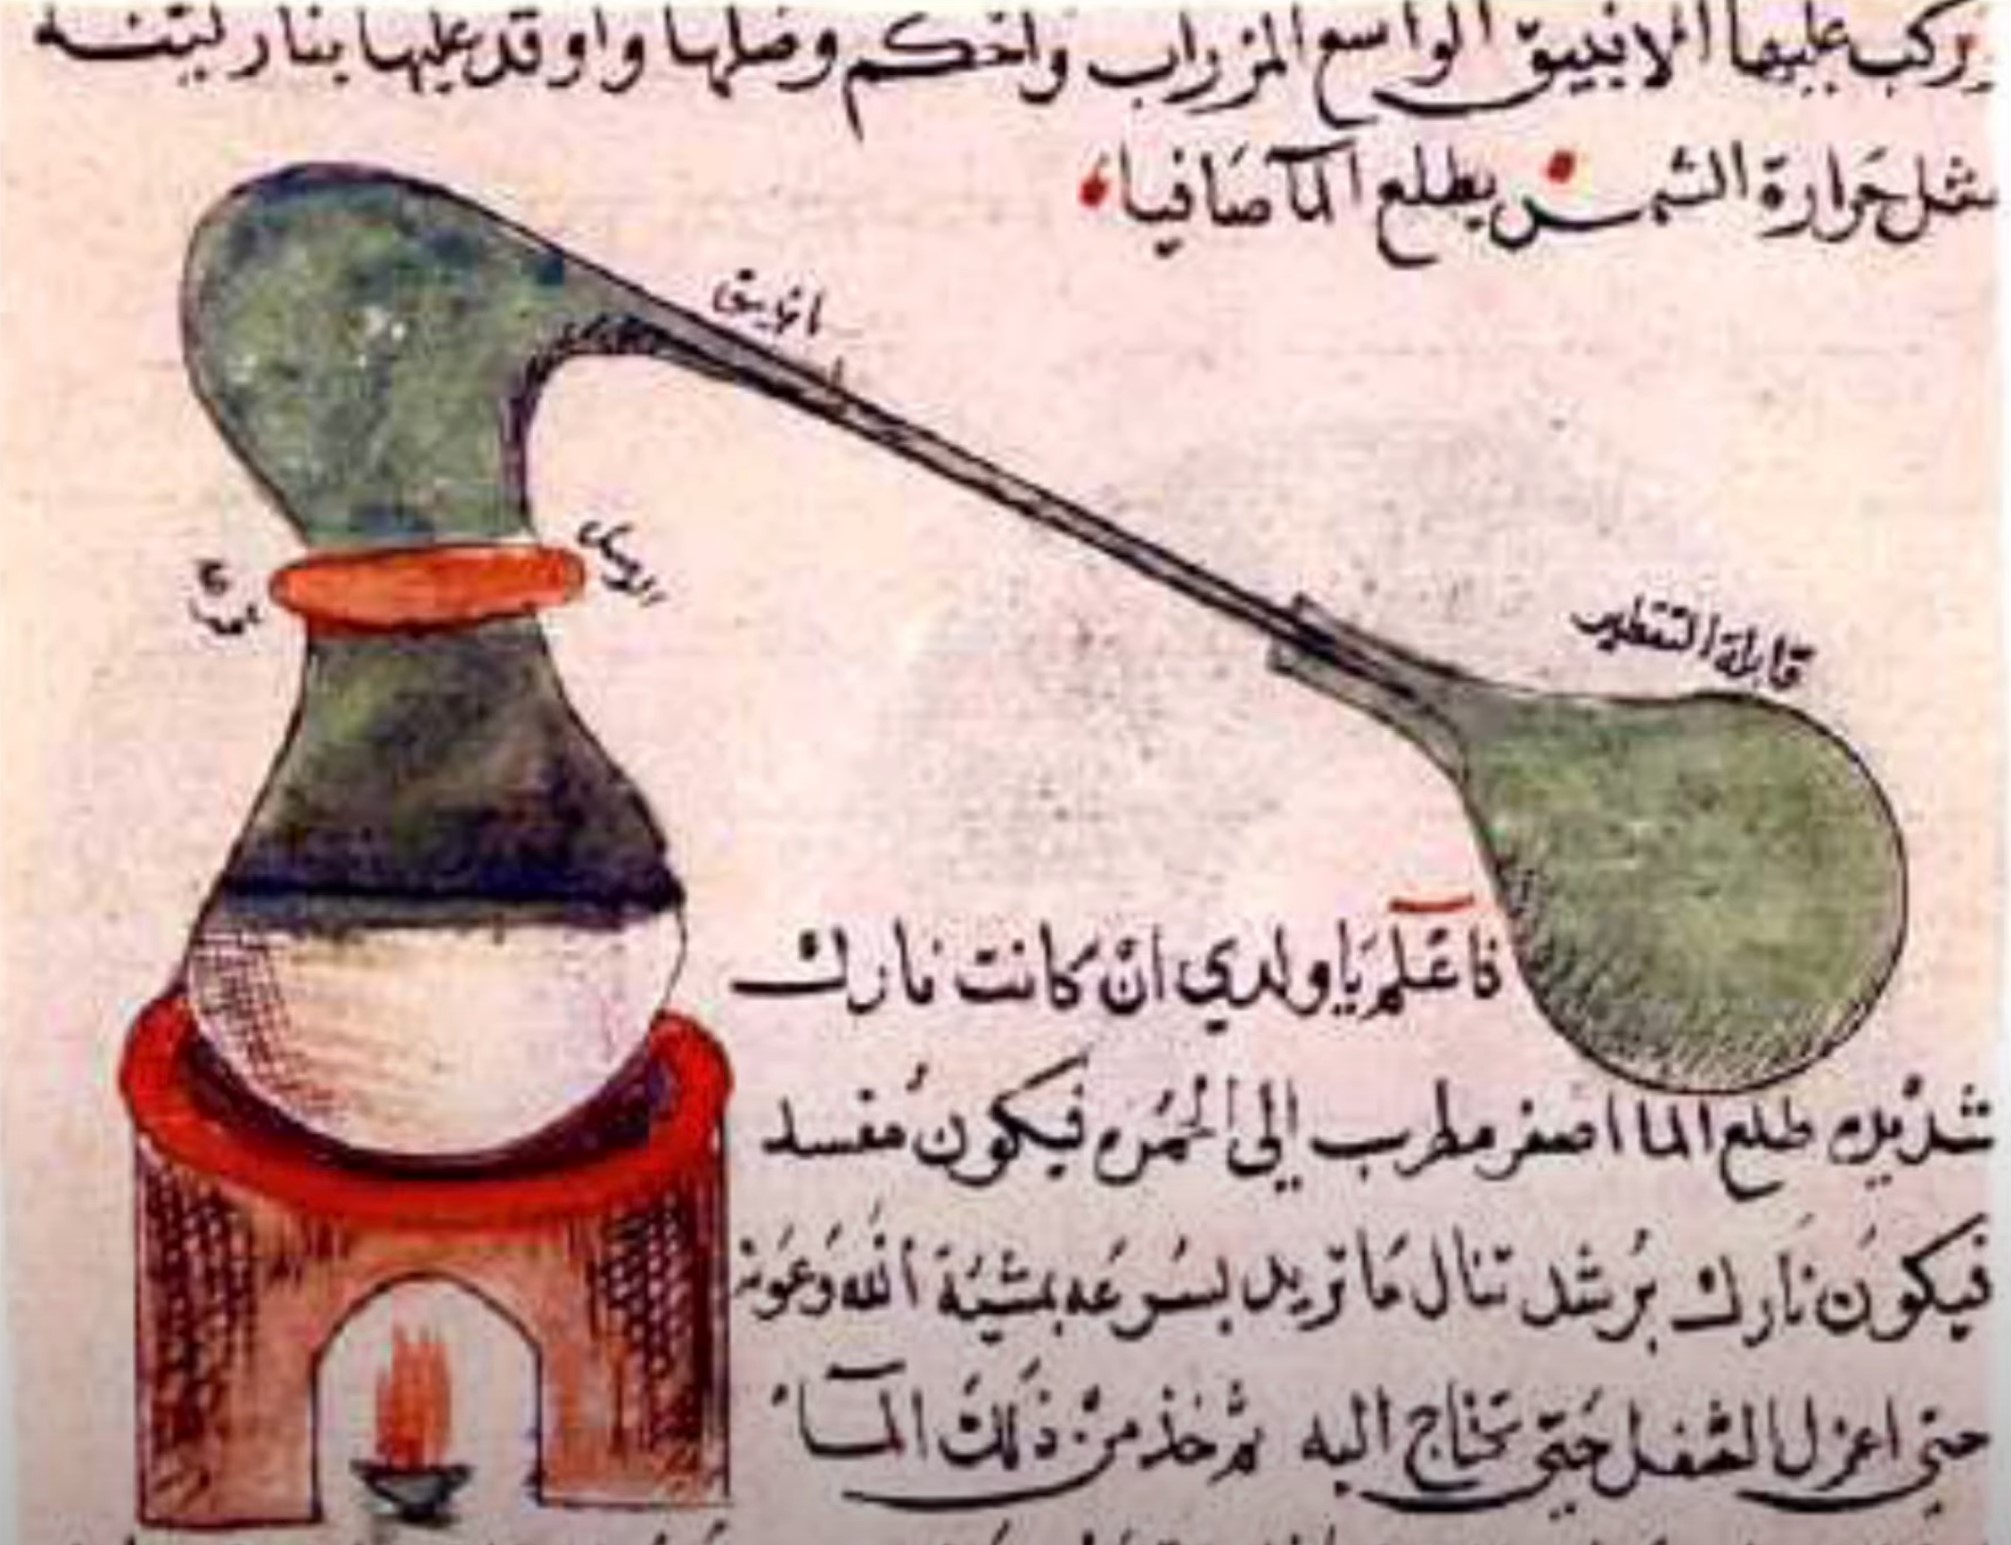 يركب عليها الانبيق الواسع المزراب واحكم وصلها واوقد عليها بنار لينه
مثل حرارة الشمس يطلع المآ صافيا
انبيق
الوصل
قابلة التقطير
فاعلم يا ولدي ان كانت نارك
شديده طلع الما اصفر مطرب إلى الحمره فيكون مفسد
فيكون نارك برشد تنال ما تريد بسرعه بمشية الله وعونه
حتى اعزل الثفل حتى تحتاج اليه ثم خذ من ذلك المآء